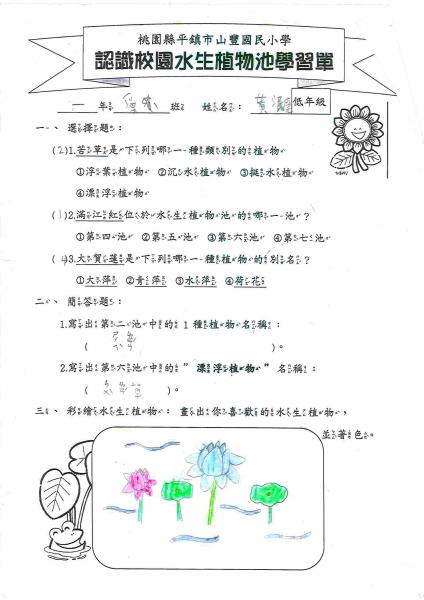 桃園縣平鎮市山豐國民小學
認識校園水生植物池學習單
一 年 班 姓名： 黃 低年級
一、選擇題：
(2)1.苦草是下列哪一種類別的植物
①浮葉植物 ②沉水植物 ③挺水植物
④漂浮植物
(1)2.滿江紅位於水生植物池的哪一池？
①第四池 ②第五池 ③第六池 ④第七池
(4)3.大賀蓮是下列哪一種植物的別名？
①大萍 ②青萍 ③水萍 ④荷花
二、簡答題：
1.寫出第二池中的1種植物名稱：
( )。
2.寫出第六池中的”漂浮植物”名稱：
( )。
三、彩繪水生植物：畫出你喜歡的水生植物，
並著色。